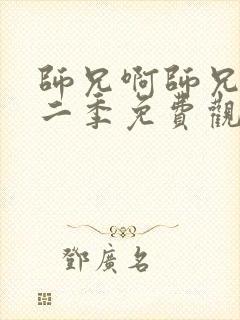 師兄啊師兄
二季免費觀
鄧廣名